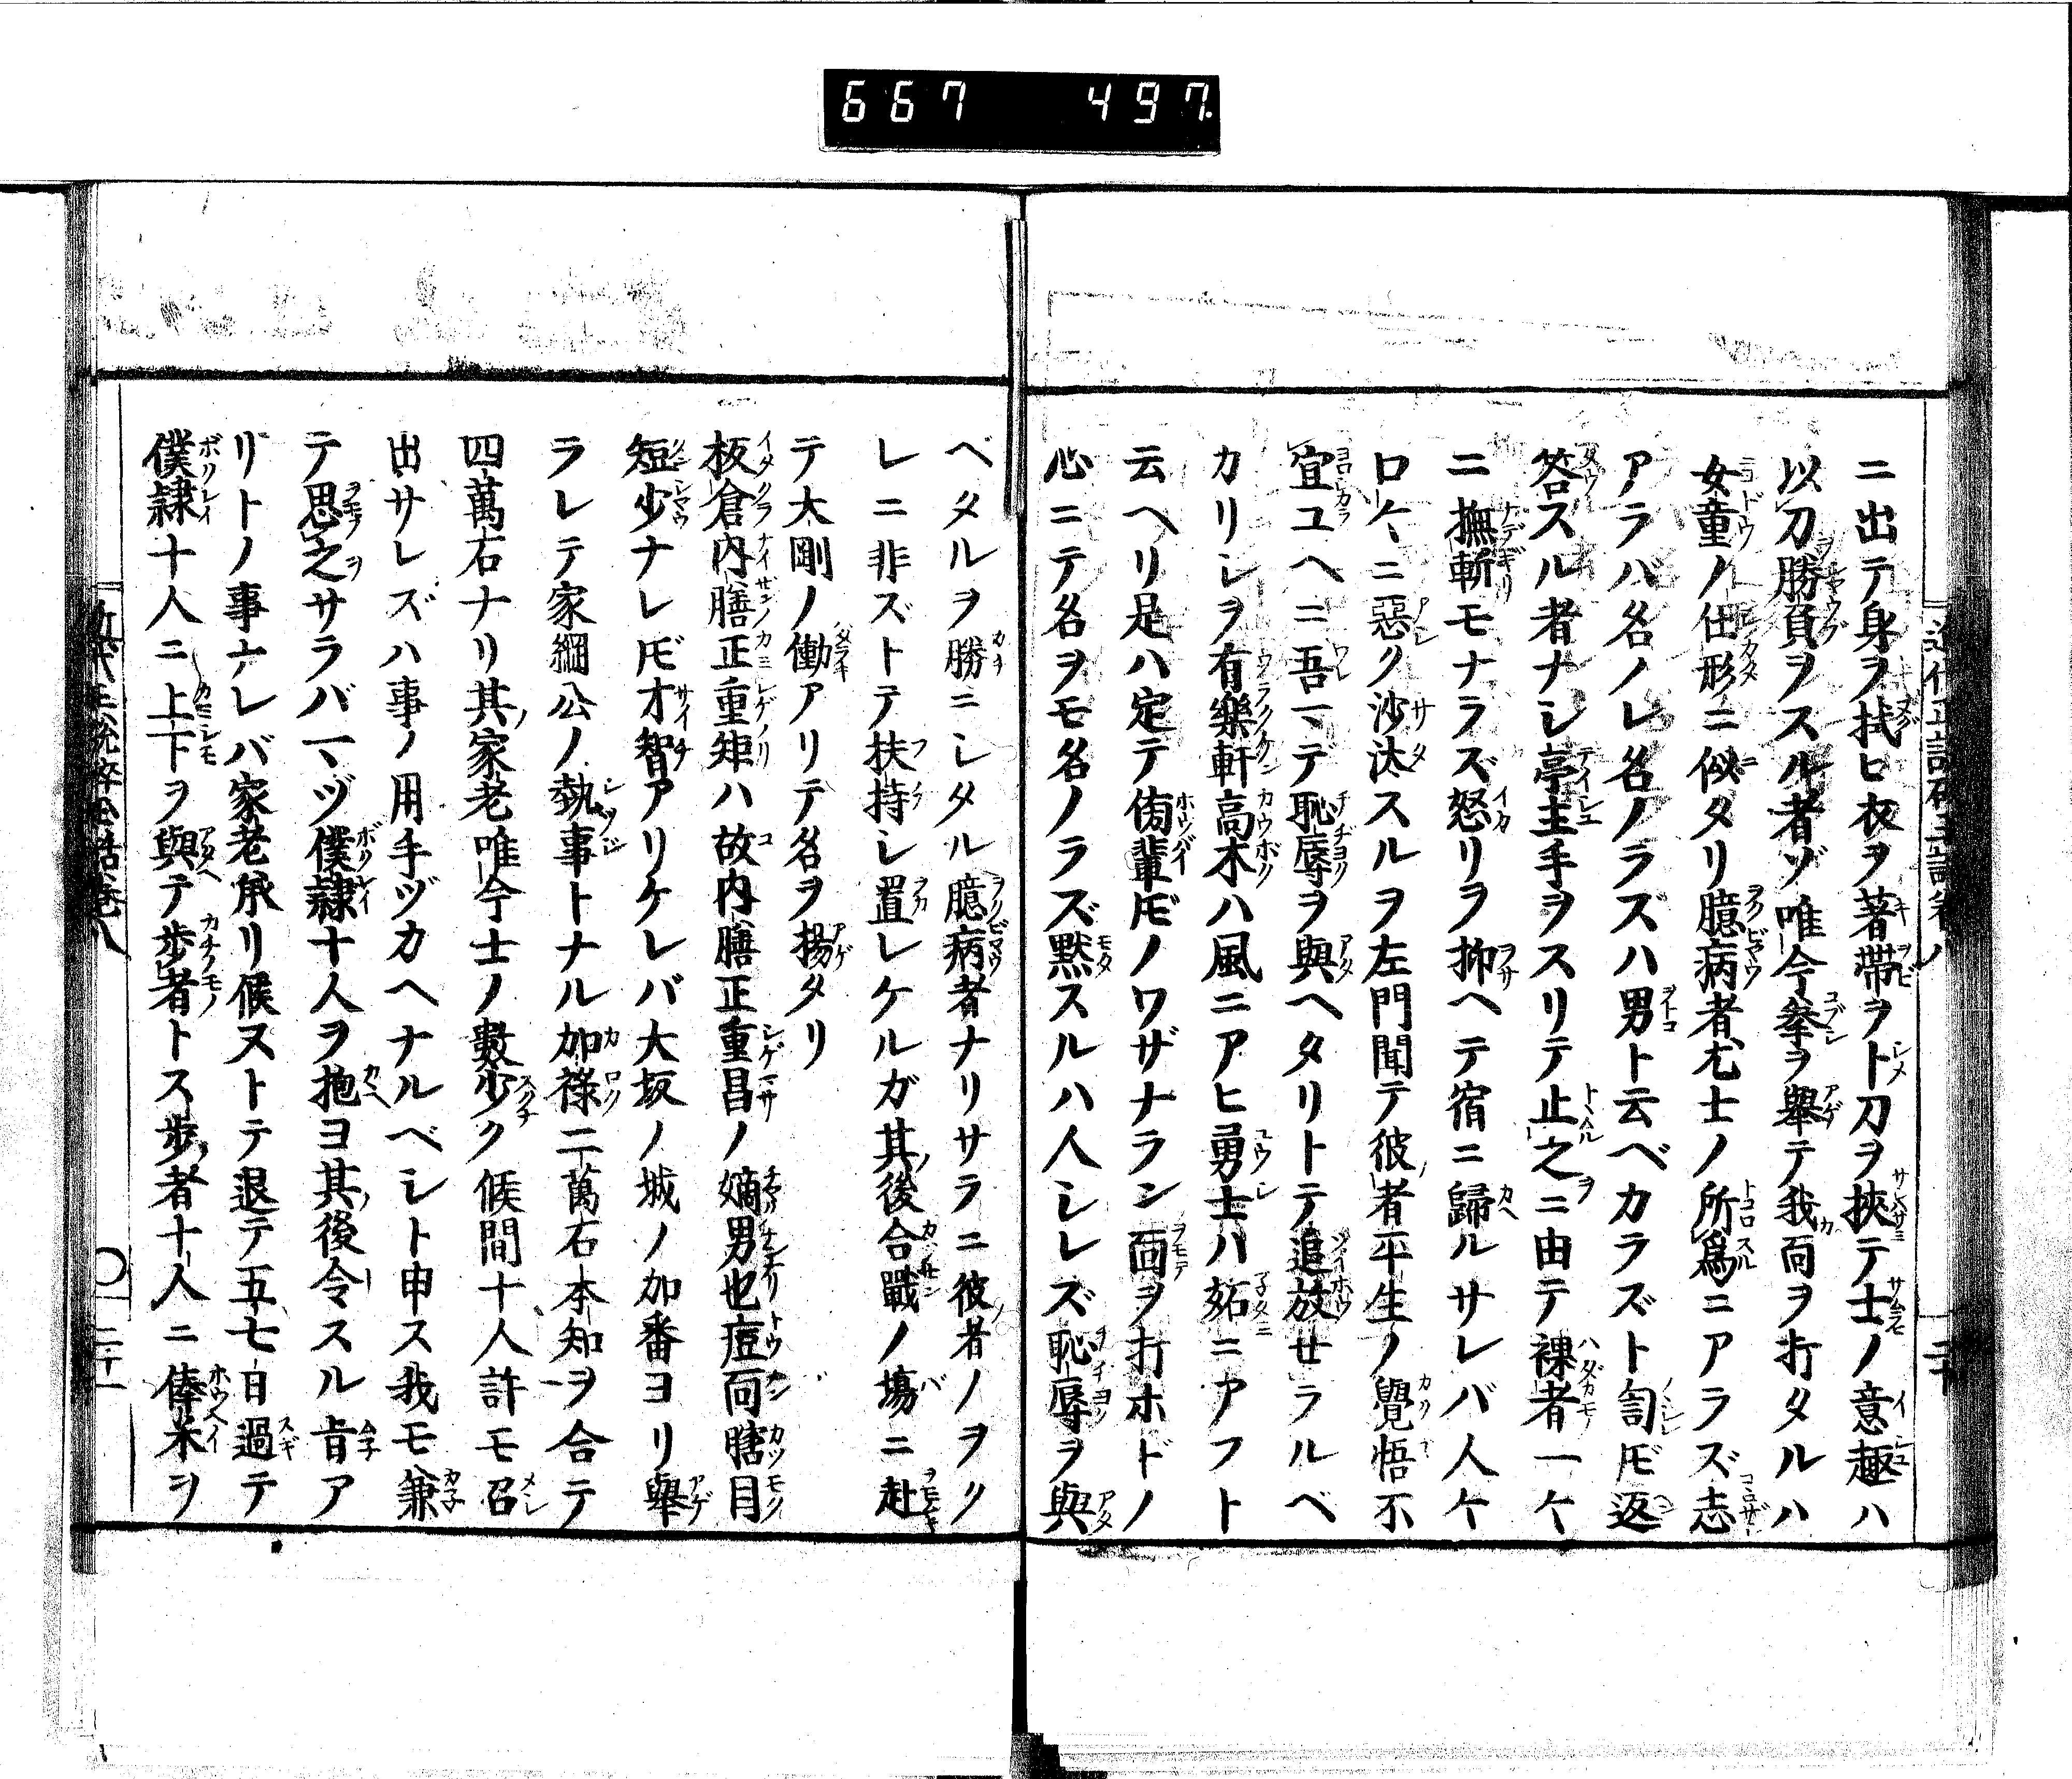 667 497
ニ出テ身ヲ拭ヒ衣ヲ著帶ヲト刀ヲ挾テ士ノ意趣ハ
以刀勝負ヲスル者ゾ唯今拳ヲ舉テ我面ヲ打タルハ
女童ノ仕形ニ似タリ臆病者尤士ノ所爲ニアラズ志
アラバ名ノレ名ノラズハ男ト云ベカラズト訇𪜈返
答スル者ナシ亭主手ヲスリテ止之ニ由テ裸者一ケ
ニ撫斬モナラズ怒リヲ抑ヘテ宿ニ歸ルサレバ人ケ
ロ〱ニ惡ク沙汰スルヲ左門聞テ彼者平生ノ覺悟不
宜ユヘニ吾マデ恥辱ヲ與ヘタリトテ追放せラルベ
カリシヲ有樂軒高木ハ風ニアヒ勇士ハ妬ニアフト
云ヘリ是ハ定テ傍輩𪜈ノワザナラン面ヲ打ホドノ
心ニテ名ヲモ名ノラズ默スルハ人シレズ恥辱ヲ與
ベタルヲ勝ニシタル臆病者ナリサラニ彼者ノヲク
レニ非ズトテ扶持シ置レケルガ其後合戰ノ塲ニ赴
テ大剛ノ働アリテ名ヲ揚タリ
板倉内膳正重矩ハ故内膳正重昌ノ嫡男也痘面瞎目
短少ナレ𪜈才智アリケレバ大坂ノ城ノ加番ヨリ舉
ラレテ家綱公ノ執事トナル加祿二萬石本知ヲ合テ
四萬石ナリ其家老唯今士ノ數少ク候間十人許モ召
出サレズハ事ノ用手ヅカヘナルベシト申ス我モ兼
テ思之サラバマヅ僕隷十人ヲ抱ヨ其後令スル旨ア
リトノ事ナレバ家老承リ候ヌトテ退テ五七日過テ
僕隷十人ニ上下ヲ與テ歩者トス歩者十人ニ俸米ヲ